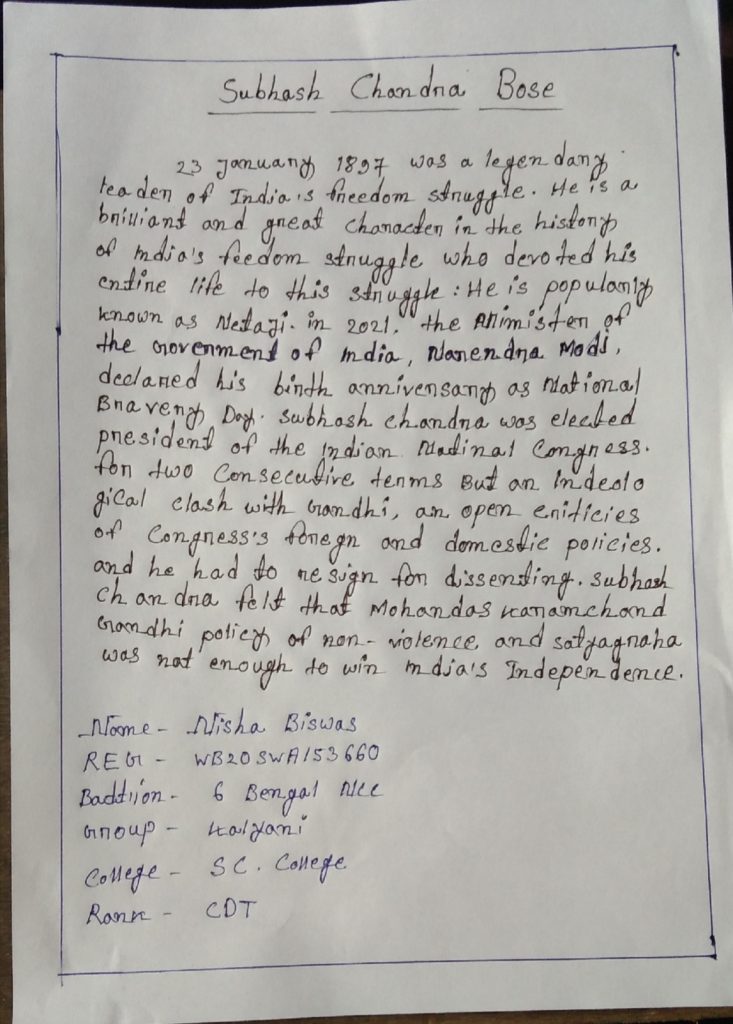 Subhash Chandra Bose
23 January 1897 was a legendary
leader of India's freedom struggle. He is a
brilliant and great Character in the history
of India's feedom struggle who devoted his
entire life to this struggle : He is popularly
known as Netaji. in 2021, the PMinister of
the Govenment of India, Narendra Modi,
declared his birth anniversary as National
Bravery Day. Subhash chandra was elected
president of the Indian Natinal Congress.
for two Consecutive terms But an Indeolo
gical clash with Gandhi, an open criticies
of Congress's foregn and domestic policies.
and he had to resign for dissenting. Subhash
Chandra felt that Mohandas Karamchand
Gandhi policy of non-violence and satyagraha
was not enough to win India's Independence.
Name - Nisha Biswas
REG - WB20SWA153660
Battlion - 6 Bengal NCC
Group - Kalyani
College - SC. College
Rank - CDT